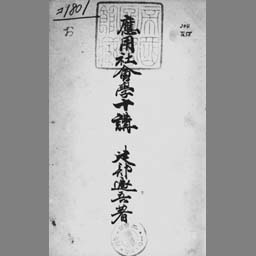 21801
お
應用社會學十講
建部遯吾著